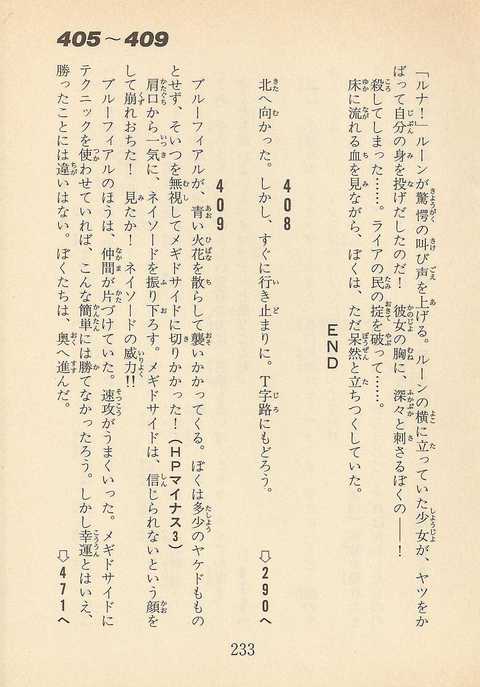 405～409
「ルナ！」ルーンが驚愕の叫び声を上げる。ルーンの横に立っていた少女が、ヤツをか
ばって自分の身を投げだしたのだ！　彼女の胸に、深々と刺さるぼくの――！
殺してしまった……。ライアの民の掟を破って……。
床に流れる血を見ながら、ぼくは、ただ呆然と立ちつくしていた。
END
408
北へ向かった。しかし、すぐに行き止まりに。T字路にもどろう。
⇨290へ
409
ブルーフィアルが、青い火花を散らして襲いかかってくる。ぼくは多少のヤケドももの
とせず、そいつを無視してメギドサイドに切りかかった！（HPマイナス3）
肩口から一気に、ネイソードを振り下ろす。メギドサイドは、信じられないという顔を
して崩れおちた！　見たか！　ネイソードの威力!!
ブルーフィアルのほうは、仲間が片づけていた。速攻がうまくいった。メギドサイドに
テクニックを使わせていれば、こんな簡単には勝てなかったろう。しかし幸運とはいえ、
勝ったことには違いはない。ぼくたちは、奥へ進んだ。
⇨471へ
233